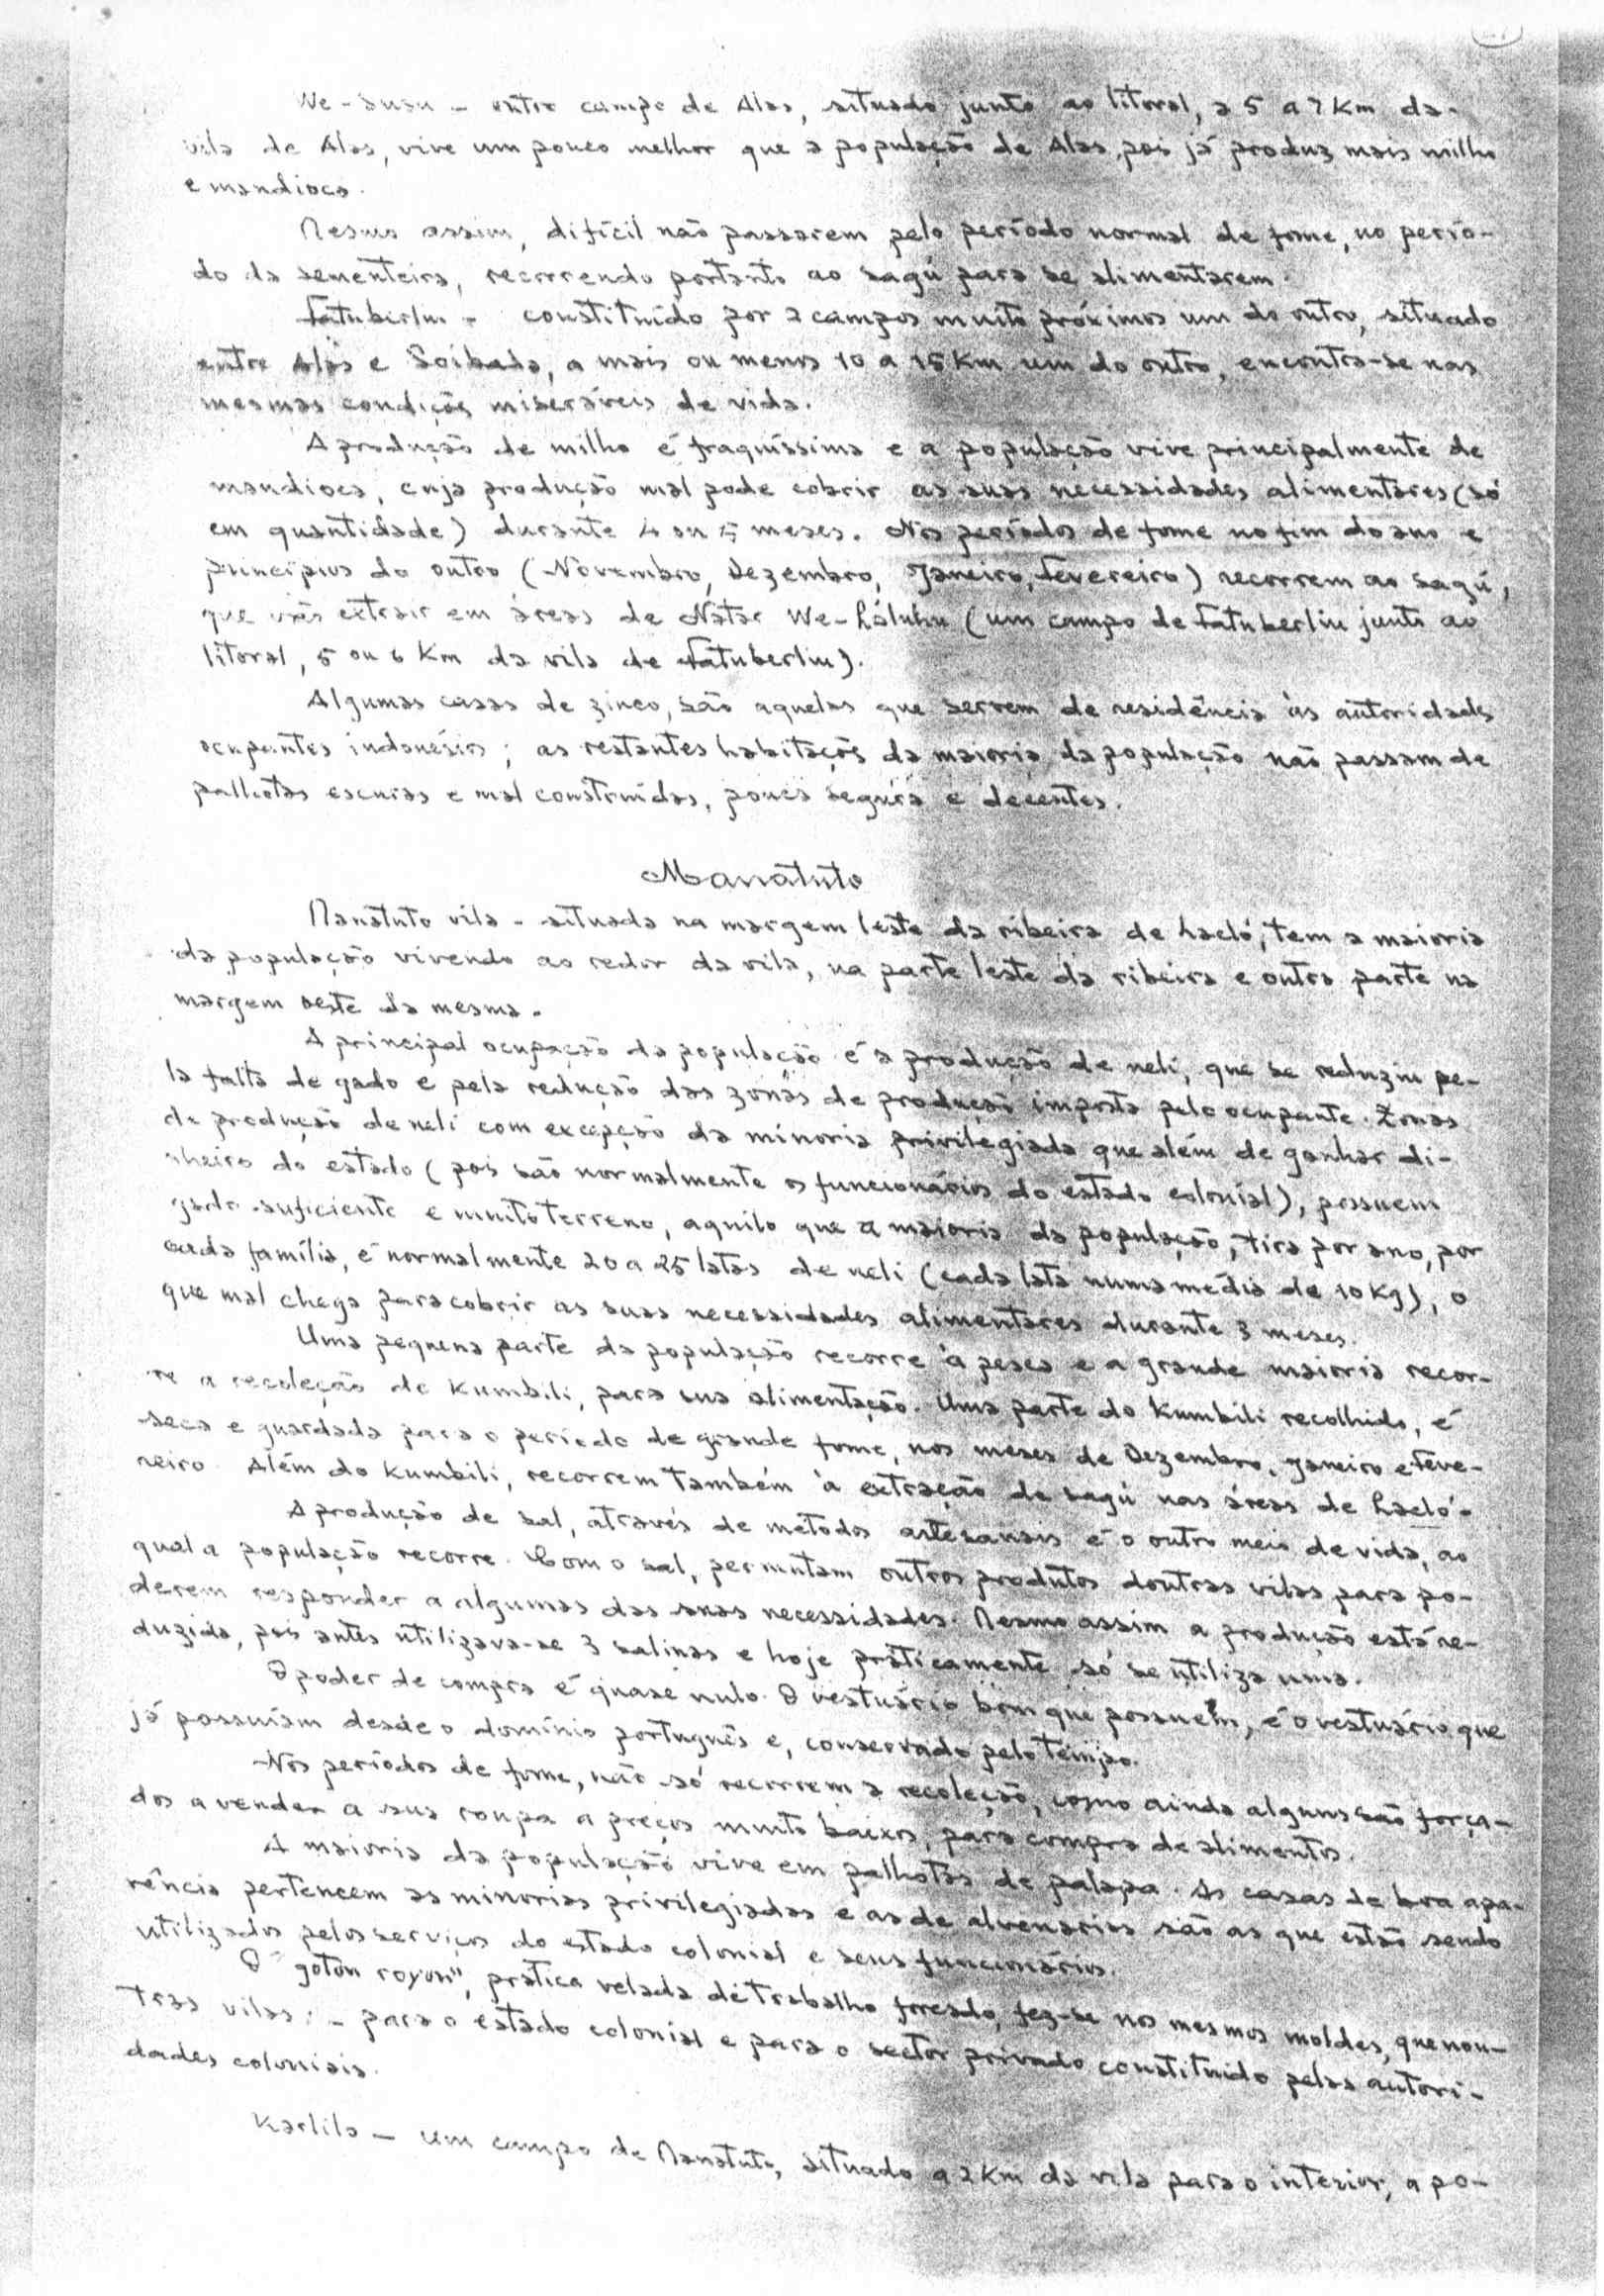 We-Susu - outro campo de Alas, situado junto ao litoral, a 5 a 7 Km da
vila de Alas, vive um pouco melhor que a população de Alas, pois já produz mais milho
e mandioca.
Mesmo assim, difícil não passarem pelo período normal de fome, no perío-
do da sementeira, recorrendo portanto ao sagú para se alimentarem.
Fatuberliu - constituído por 2 campos muito próximos um do outro, situado
entre Alas e Soibada, a mais ou menos 10 a 15 Km um do outro, encontra-se nas
mesmas condições miseráveis de vida.
A produção de milho é fraquíssima e a população vive principalmente de
mandioca, cuja produção mal pode cobrir as suas necessidades alimentares (só
em quantidade) durante 4 ou 5 meses. Nos períodos de fome no fim do ano e
princípios do outro (Novembro, Dezembro, Janeiro, Fevereiro) recorrem ao sagú,
que vão extrair em áreas de Natar We-Láluhu (um campo de Fatuberliu junto ao
litoral, 5 ou 6 Km da vila de Fatuberliu).
Algumas casas de zinco, são aquelas que servem de residência às autoridades
ocupantes indonésios; as restantes habitações da maioria da população não passam de
palhotas escuras e mal construídas, pouco segura e decentes.
Manatuto
Manatuto vila - situada na margem leste da ribeira de Lacló, tem a maioria
da população vivendo ao redor da vila, na parte leste da ribeira e outra parte na
margem oeste da mesma.
A principal ocupação da população é a produção de neli, que se reduziu pe-
la falta de gado e pela redução das zonas de produção imposta pelo ocupante. Zonas
de produção de neli com excepção da minoria privilegiada que além de ganhar di-
nheiro do estado (pois são normalmente os funcionários do estado colonial), possuem
gado suficiente e muito terreno, aquilo que a maioria da população, tira por ano, por
cada família, é normalmente 20 a 25 latas de neli (cada lata numa média de 10 kg), o
que mal chega para cobrir as suas necessidades alimentares durante 3 meses.
Uma pequena parte da população recorre à pesca e a grande maioria recor-
re a recoleção de Kumbili, para sua alimentação. Uma parte do Kumbili recolhido, é
seca e guardada para o período de grande fome, nos meses de Dezembro, Janeiro e Feve-
reiro. Além do Kumbili, recorrem também à extração de sagú nas áreas de Lacló.
A produção de sal, através de métodos artesanais é o outro meio de vida, ao
qual a população recorre. Com o sal, permutam outros produtos doutras vilas para po-
derem responder a algumas das suas necessidades. Mesmo assim a produção está re-
duzida, pois antes utilizava-se 3 salinas e hoje práticamente só se utiliza uma.
O poder de compra é quase nulo. O vestuário bom que possuem, é o vestuário que
já possuíam desde o domínio português e, conservado pelo tempo.
Nos períodos de fome, não só recorrem a recoleção, como ainda alguns são força-
dos a vender a sua roupa a preços muito baixos, para compra de alimentos.
A maioria da população vive em palhotas de palapa. As casas de boa apa-
rência pertencem as minorias privilegiadas e as de alvenarias são as que estão sendo
utilizados pelos serviços do estado colonial e seus funcionários.
O "gotón royon", prática velada de trabalho forçado, fez-se nos mesmos moldes, que nou-
tras vilas: - para o estado colonial e para o sector privado constituido pelas autori-
dades coloniais.
Karlila - um campo de Manatuto, situado a 2 Km da vila para o interior, a po-